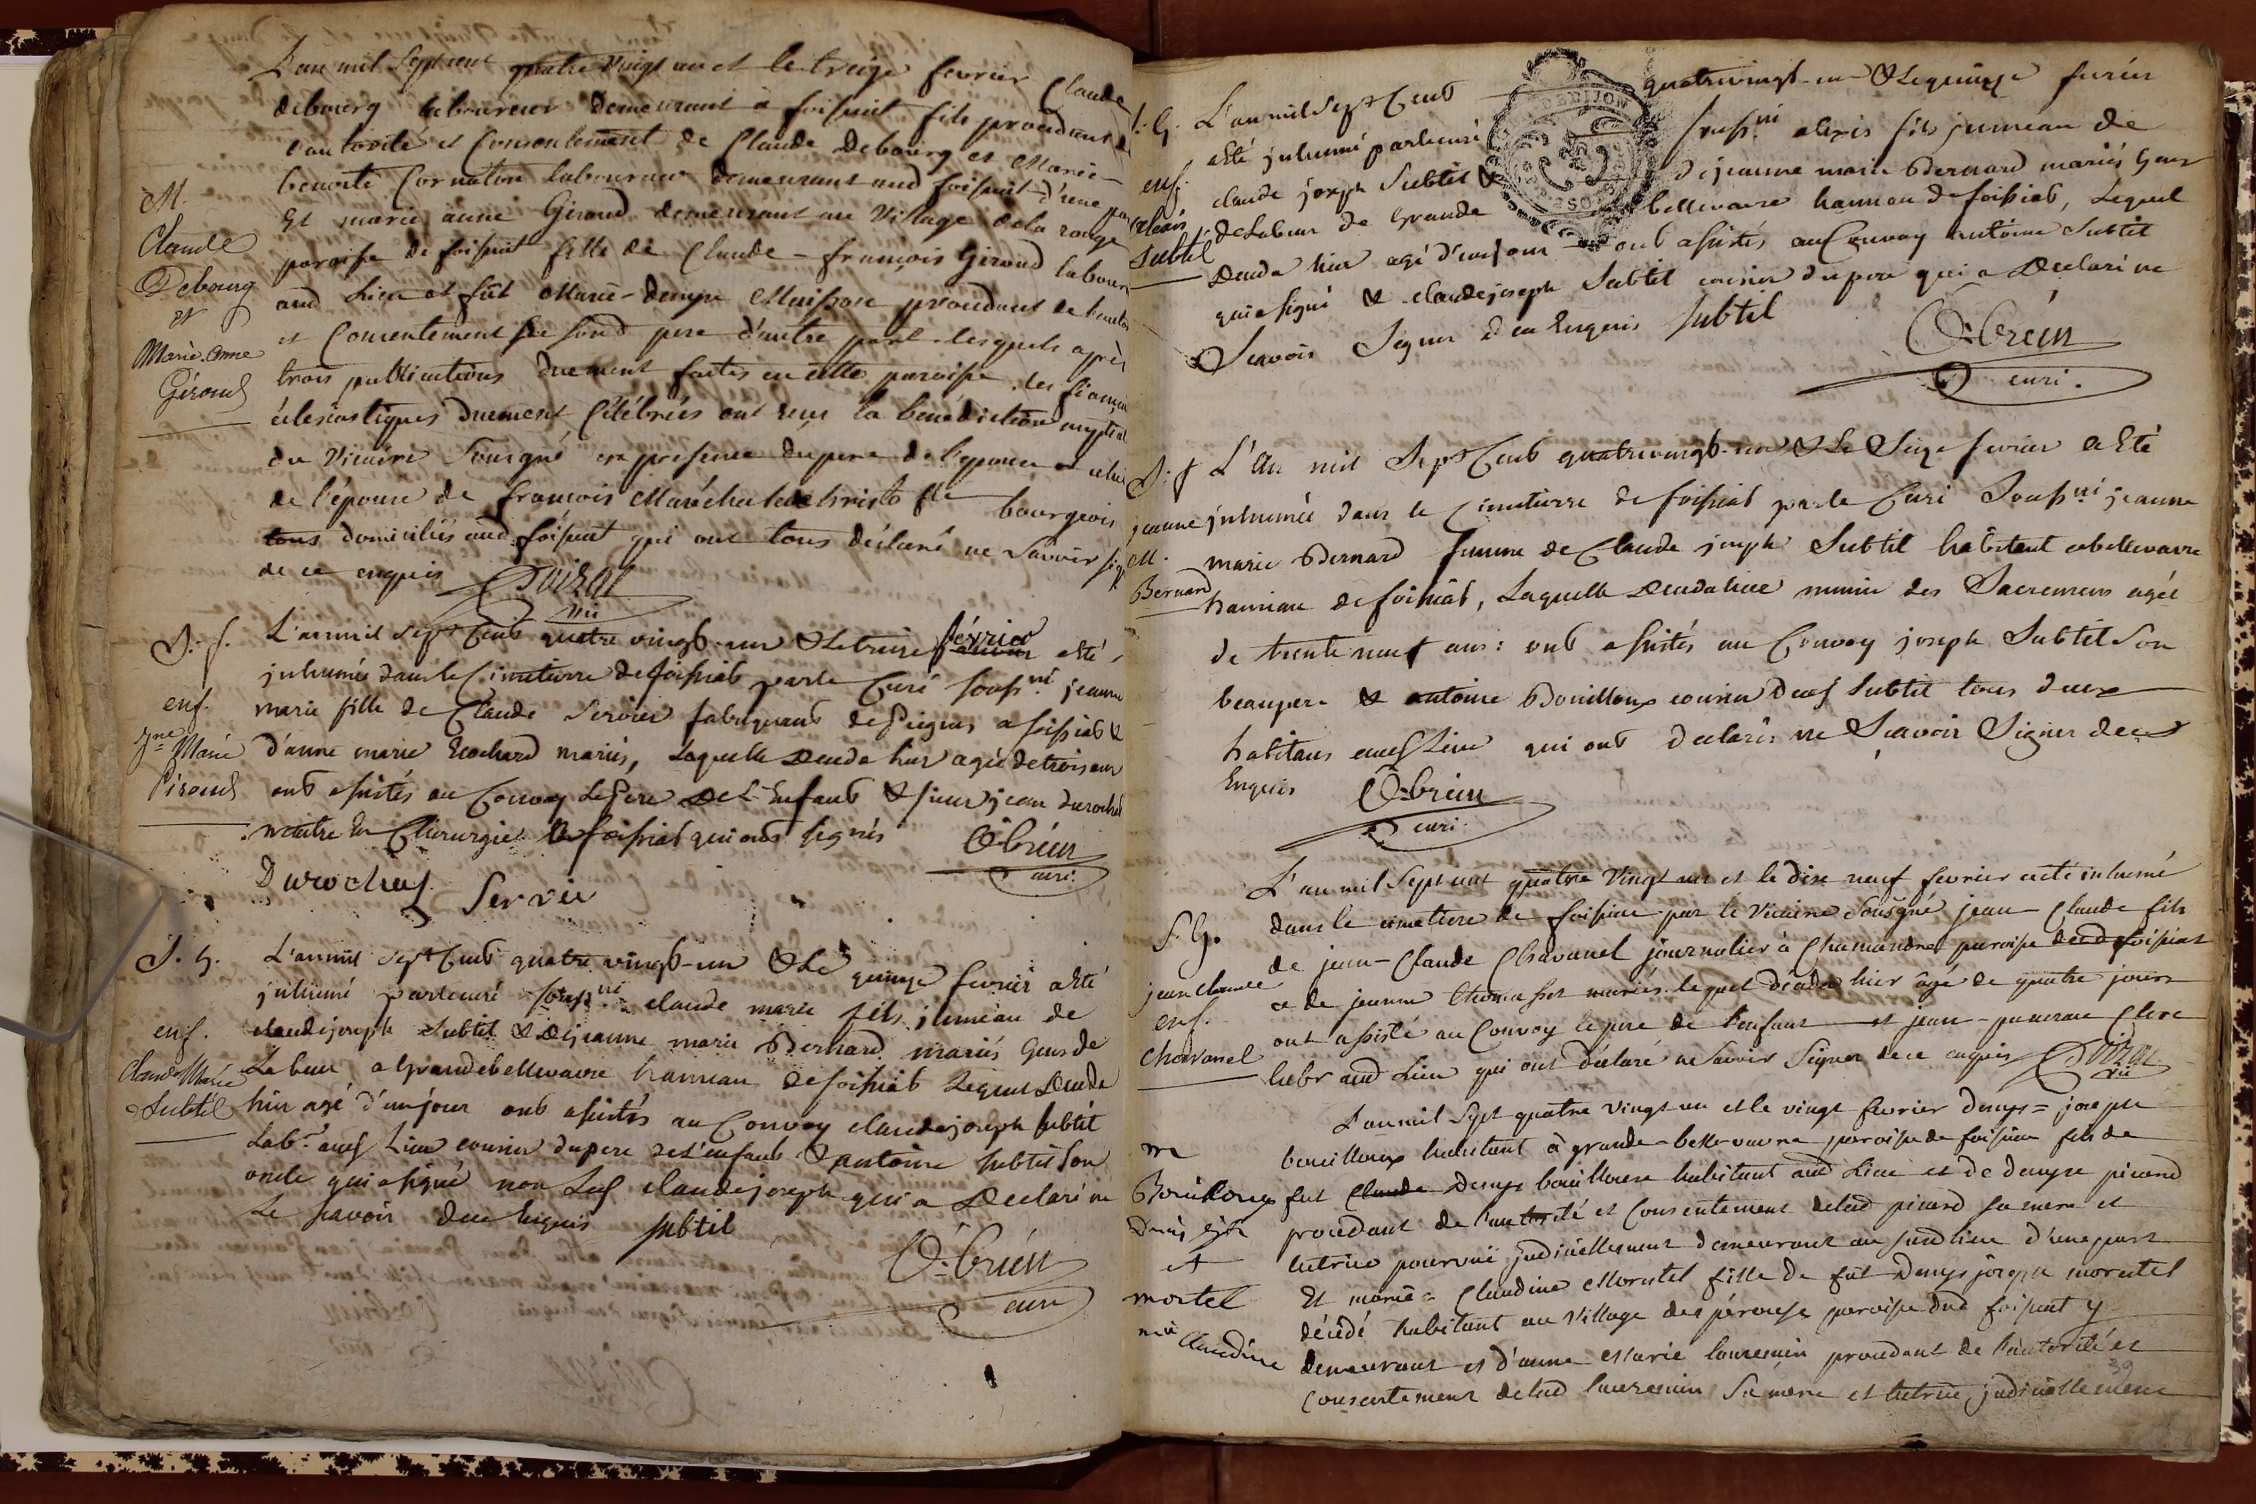 L'an mil sept cent quatre vingt un et le treize fevrier Claude
debourg laboureur demeurant à foissiat fils procedant de
l'autorité et Consentement de Claude Debourg et Marie
benoite Cornaton laboureurs demeurant aud foissiat d'une par
Et marie anne Giroud demeurant au Village de la rouge
paroisse de foissiat fille de Claude-françois Giroud labour
aud Lieu et fut Marie-denyse procedant de l'autor
et Consentement de sond pere d'autre part lesquels après
trois publications duement faites en cette paroisse les fiança
eclesiastiques duement Célébrées ont reçu la bénédiction nuptial
du Vicaire Sousigné en presence du pere de l'epoux et celui
de l'épouse de françois Maréchal de bourgeois
tous domiciliés aud foissiat qui ont tous déclaré ne Savoir sig
de ce enquis
vic
M.
Claude
Debourg
et
Marie-Anne
Giroud
L'an mil sept Cent quatre vingt-un & le treize février a Eté
inhumée dans le Cimetierre de foissiat par le Curé souss.né jeanne
marie fille de Claude Servier fabriquant de Peignes a foissiat &
d'anne marie Ecochard mariés, Laquelle Deceda hier agée de trois ans
ont assistés au Convoy Le Pere De L'Enfant & sieur jean durochat
maitre En Chirurgie de foissiat qui ont signés
O-brien
curé
Durochat Servier
S. f.
enf.
jne Marie
S. G.
L'an mil sept Cent quatre vingt-un & Le quinze fevrier a Eté
inhumé par le curé souss.né claude marie fils jumeau de
claude joseph Subtil & De jeanne marie Bernard mariés Gens de
Labeur a Grande bellevavre hameau de foissiat Lequel Deceda
hier agé d'un jour ont assistés au Convoy claude joseph Subtil
Lab.r aud Lieu cousin du pere de L'enfant & antoine Subtil Son
oncle qui a signé non Led claude joseph qui a Declaré ne
Le savoir de ce Enquis Subtil
O-brien
curé
enf.
Claude Marie
Subtil
S. G.
enf.
alexis
Subtil
L'an mil sept Cent quatrevingt-un & le quinze fevrier
a Eté inhumé par le curé souss.né alexis fils jumeau de
claude joseph Subtil & de jeanne marie Bernard mariés Gens
de Labeur de Grande bellevavre hameau de foissiat, Lequel
Deceda hier agé d'un jour ont assistés au Convoy antoine Subtil
qui a signé & claude joseph Subtil cousin du pere qui a Declaré ne
Scavoir Signer De ce Enquis Subtil
O-brien
curé.
S. f
jeanne
M.
Bernard
L'An mil Sept Cent quatrevingt-un & Le Seize fevrier a Eté
inhumée dans le Cimetierre de foissiat par le Curé Souss.né jeanne
marie Bernard femme de Claude joseph Subtil habitant a bellevavre
hameau de foissiat, Laquelle Deceda hier munie des Sacremens agée
de trente neuf ans: ont assistés au Convoy joseph Subtil Son
beaupere & antoine Bouilloux cousin dud Subtil tous deux
habitans aud Lieu qui ont declarés ne Scavoir Signer de ce
Enquis
O-brien
curé.
S. G.
jean claude
enf.
Chavanel
L'an mil Sept cent quatre Vingt un et le dix neuf fevrier a eté inhumé
dans le cimetiere de foissiat par le Vicaire Sousigné jean-Claude fils
de jean-Claude Chavanel journalier à Chamandre paroisse dud foissiat
et de jeanne Thomasset mariés lequel décéda hier âgé de quatre jours
ont assisté au Convoy le pere de l'enfant et jean Clere
labr aud Lieu qui ont déclaré ne Savoir Signer de ce enquis
vic
L'an mil Sept quatre Vingt un et le vingt fevrier denys=joseph
bouilloux habitant à grande-bellevavre paroisse de foissiat fils de
fut Claude Denys bouilloux habitant aud Lieu et de denyse picard
procedant de l'autorité et Consentement de lad picard sa mere et
tutrice pourvuë judiciellement demeurant au susd lieu d'une part
Et marie=Claudine Moratel fille de fut Denys joseph moratel
décédé habitant au Village des pérouse paroisse dud foissiat y
demeurant et d'anne Marie laurencin procedant de l'autorité et
Consentement de lad laurencin Sa mere et tutrice judiciellement
m
Bouilloux
Denis
et
mortel
mie Claudine
39